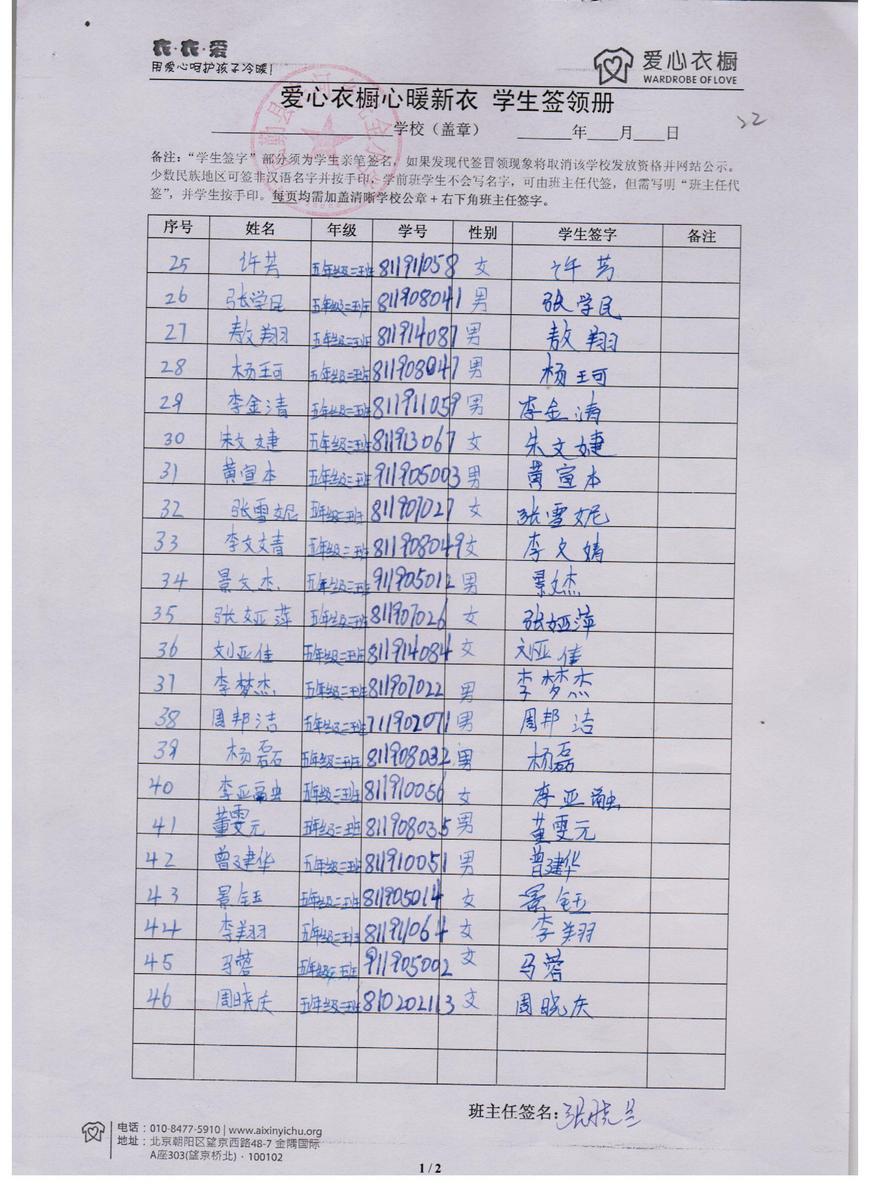 衣·衣·爱
用爱心呵护孩子冷暖!
爱心衣橱
WARDROBE OF LOVE
爱心衣橱心暖新衣 学生签领册
22
学校（盖章） 年 月 日
备注：“学生签字”部分须为学生亲笔签名，如果发现代签冒领现象将取消该学校发放资格并网站公示。
少数民族地区可签非汉语名字并按手印，学前班学生不会写名字，可由班主任代签，但需写明“班主任代
签”，并学生按手印。每页均需加盖清晰学校公章+右下角班主任签字。
序号 姓名 年级 学号 性别 学生签字 备注
25 许芳 五年级二班 811911058 女 许芳
26 张学民 五年级二班 811908041 男 张学民
27 敖翔 五年级二班 811914087 男 敖翔
28 杨珂 五年级二班 811908047 男 杨珂
29 李金清 五年级二班 811911059 男 李金清
30 朱文婕 五年级二班 811913067 女 朱文婕
31 黄宣本 五年级二班 911905003 男 黄宣本
32 张雪妮 五年级二班 811907027 女 张雪妮
33 李文婧 五年级二班 811908049 女 李文婧
34 景文杰 五年级二班 911905012 男 景文杰
35 张娅萍 五年级二班 811907026 女 张娅萍
36 刘亚佳 五年级二班 811914084 女 刘亚佳
37 李梦杰 五年级二班 811907022 男 李梦杰
38 周邦洁 五年级二班 711902071 男 周邦洁
39 杨磊 五年级二班 811908032 男 杨磊
40 李亚融 五年级二班 811910056 女 李亚融
41 董雯元 五年级二班 811908035 男 董雯元
42 曾建华 五年级二班 811910051 男 曾建华
43 景钰 五年级二班 811905014 女 景钰
44 李翔 五年级二班 811911064 女 李翔
45 马蓉 五年级 911905002 女 马蓉
46 周晓庆 五年级二班 810202113 女 周晓庆
班主任签名：张晓兰
电话：010-8477-5910 | www.aixinyichu.org
地址：北京朝阳区望京西路48-7 金隅国际
A座303(望京桥北)·100102
1 / 2